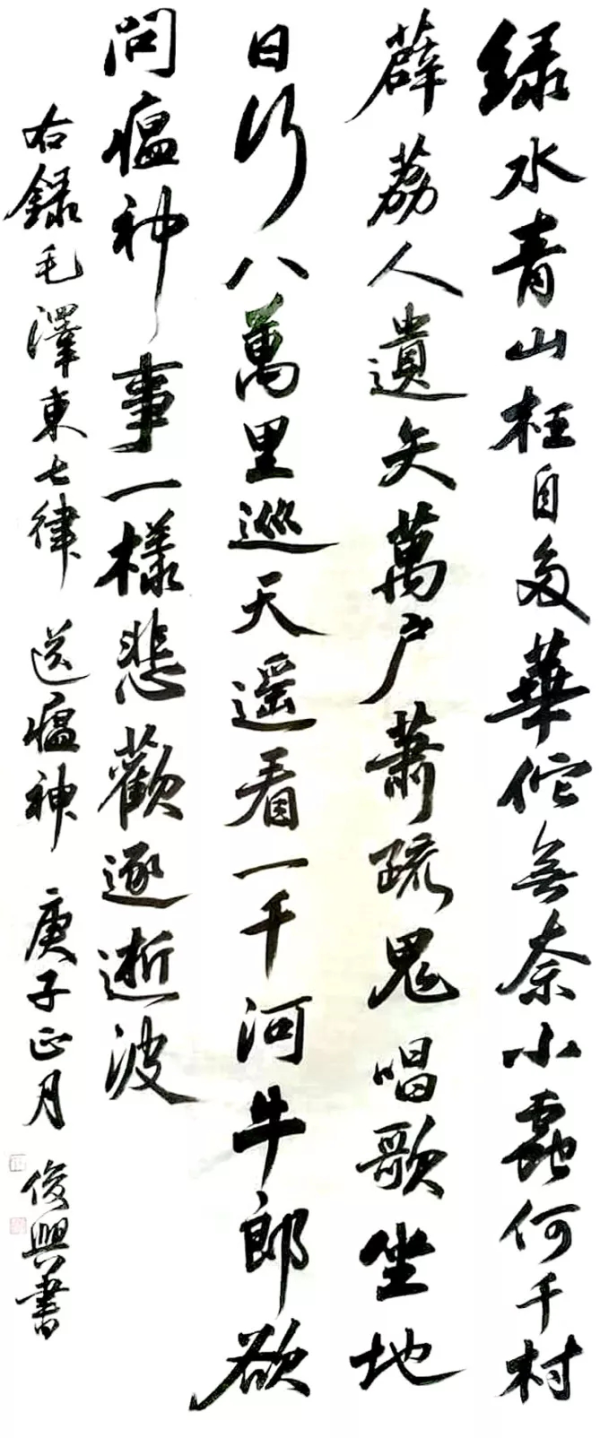 绿水青山枉自多華佗無奈小蟲何千村
薜荔人遺矢萬户蕭疏鬼唱歌坐地
日行八萬里巡天遥看一千河牛郎欲
問瘟神事一樣悲歡逐逝波
右録毛澤東七律送瘟神庚子正月俊興書